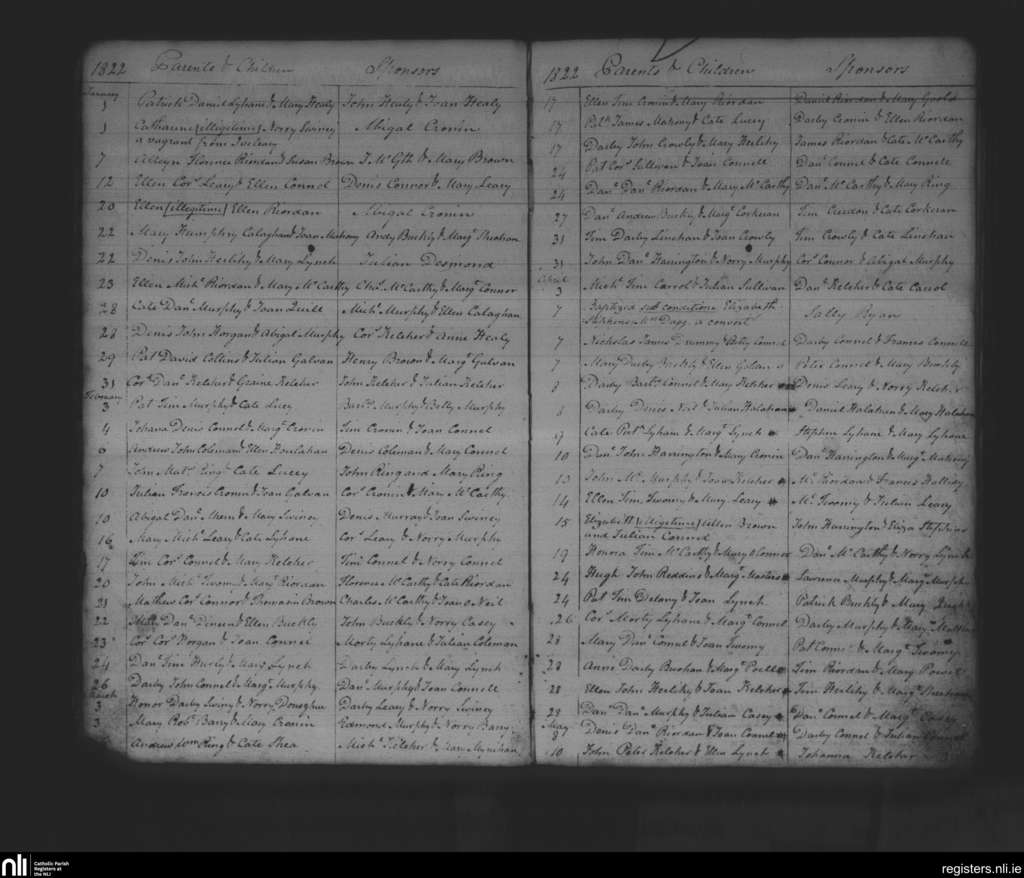 1822 Parents & Children Sponsors
January
1 Patrick Daniel Lyhane & Mary Healy John Healy & Joan Healy
1 Catharine (illegitime) Norry Swiney Abigal Cronin
a vagrant from Iveleary
7 Florence Riordan & Susan Brown & Mary Brown
12 Ellen Corˢ Leary & Ellen Connel Denis Connor & Mary Leary
20 Ellen (illegitime) Ellen Riordan Abigal Cronin
22 Mary Humphry Calaghan & Joan Mahony Andy Buckly & Margᵗ Sheehan
22 Denis John Herlihy & Mary Lynch Julian Desmond
23 Ellen Michˡ Riordan & Mary McCarthy Chˢ McCarthy & Margᵗ Connor
28 Cate Danˡ Murphy & Joan Quill Michˡ Murphy & Ellen Calaghan
28 Denis John Horgan & Abigal Murphy Corˢ Kelcher & Anne Healy
29 Pat David Collins & Julian Galvan Henry Brown & Margᵗ Galvan
31 Corˢ Danˡ Kelcher & Graine Kelcher John Kelcher & Julian Kelcher
February
3 Pat Tim Murphy & Cate Lucy Barᵗʷ Murphy & Betty Murphy
4 Johana Denis Connel & Margᵗ Cronin Tim Cronin & Joan Connel
6 Andrew John Coleman & Ellen Houlahan Denis Coleman & Mary Connel
7 John Matᵗ Ring & Cate Lucey John Ring and Mary Ring
10 Julian Francis Cronin & Joan Galvan Corˢ Cronin & Mary McCarthy
10 Abigal Danˡ & Mary Swiney Denis Murray & Joan Swiney
16 Mary Michˡ Leary & Cate Lyhane Corˢ Leary & Norry Murphy
17 Tim Corˢ Connel & Mary Kelcher Tim Connel & Norry Connel
20 John Michˡ Twomy & Mary Riordan Florence McCarthy & Cate Riordan
21 Mathew Corˢ Connor & Thomasin Brown Charles McCarthy & Joan O Neil
22 Danˡ Dineen & Ellen Buckly John Buckly & Norry Casey
23 Corˢ Corˢ Horgan & Joan Connel Morty Lyhane & Julian Coleman
24 Danˡ Tim Hurly & Mary Lynch Darby Lynch & Mary Lynch
26 Darby John Connel & Margᵗ Murphy Danˡ Murphy & Joan Connell
March
3 Honor Darby Swiny & Norry Donoghue Darby Leary & Norry Swiney
3 Mary Robᵗ Barry & Mary Cronin Redmond Murphy & Norry Barry
Andrew Wm Ring & Cate Shea Michˡ Kelcher & Mary Mynihan
1822 Parents & Children Sponsors
17 Ellen Tim Cronin & Mary Riordan Daniel Riordan & Mary Goold
17 Patᵏ James Mahony & Cate Lucey Darby Cronin & Ellen Riordan
17 Darby John Crowly & Mary Herlihy James Riordan & Cate McCarthy
24 Pat Corˢ Sullivan & Joan Connell Danˡ Connel & Cate Connell
24 Danˡ Danˡ Riordan & Mary McCarthy Danˡ McCarthy & Mary Ring
27 Danˡ Andrew Buckly & Margᵗ Corkeran Tim Creedon & Cate Corkeran
31 Tim Darby Linehan & Joan Crowly Tim Crowly & Cate Linehan
31 John Danˡ Harrington & Norry Murphy Corˢ Connor & Abigal Murphy
April
3 Michˡ Tim Carrol & Julian Sullivan Danˡ Kelcher & Cate Carrol
7 Baptized sub conditione Elizabeth Sally Ryan
a convert
7 Nicholas James Drummy & Betty Connel Darby Connel & Frances Connell
7 Mary Darby Buckly & Ellen Peter Connel & Mary Buckly
8 Darby Barᵗʷ Connel & Mary Kelcher Denis Leary & Norry Kelcher
8 Darby Denis Neil & Julian Halahan Daniel Halahan & Mary Halahan
9 Cate Patᵏ Lyhane & Margᵗ Lynch Stephen Lyhane & Mary Lyhane
10 Danˡ John Harrington & Mary Cronin Danˡ Harrington & Margᵗ Mahony
13 John Murphy & Joan Kelcher Riordan & Frances
14 Ellen Tim Twomy & Mary Leary Twomy & Julian Leary
15 Elizabeth (illegitime) Ellen Brown John Harrington & Eliza Stephens
and Julian Connel
19 Honora Tim McCarthy & Mary O Connor Danˡ McCarthy & Norry Lynch
24 Hugh John Reddins & Margᵗ Masters Lawrence Murphy & Margᵗ Murphy
24 Pat Tim Delany & Joan Lynch Patrick Buckly & Mary
26 Corˢ Morty Lyhane & Margᵗ Connel Darby Murphy & Mary
28 Mary Danˡ Connel & Joan Twomy Pat Connel & Margᵗ Twomy
28 Anne Darby & Margᵗ Tim Riordan & Mary
28 Ellen John Herlihy & Joan Kelcher Tim Herlihy & Margᵗ
28 Danˡ Danˡ Murphy & Julian Casey Danˡ Connel & Margᵗ Casey
May
8 Denis Danˡ Riordan & Joan Connel Darby Connel & Julian Connel
10 John Peter Kelcher & Ellen Lynch Johanna Kelcher
nli Catholic Parish
Registers at
the NLI
registers.nli.ie